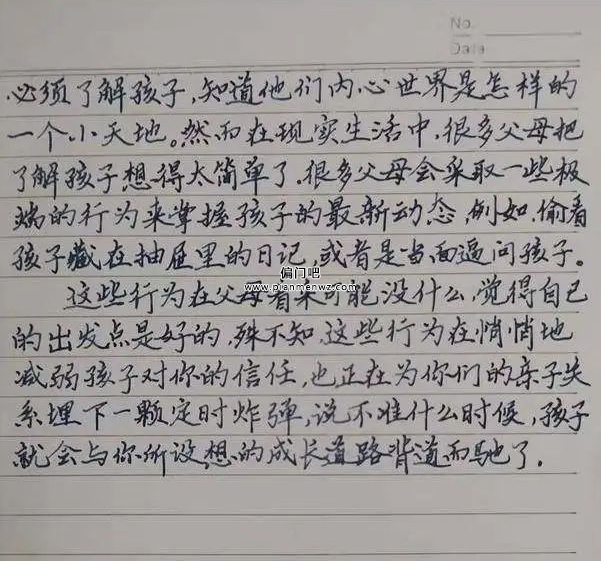 No.
Data
必须了解孩子,知道他们内心世界是怎样的
一个小天地。然而在现实生活中,很多父母把
了解孩子想得太简单了,很多父母会采取一些极
端的行为来掌握孩子的最新动态,例如,偷看
孩子藏在抽屉里的日记,或者是当面逼问孩子。
这些行为在父母看来可能没什么,觉得自己
偏门吧
www.pianmenwz.com
的出发点是好的,殊不知,这些行为在悄悄地
减弱孩子对你的信任,也正在为你们的亲子关
系埋下一颗定时炸弹,说不准什么时候,孩子
就会与你所设想的成长道路背道而驰了.